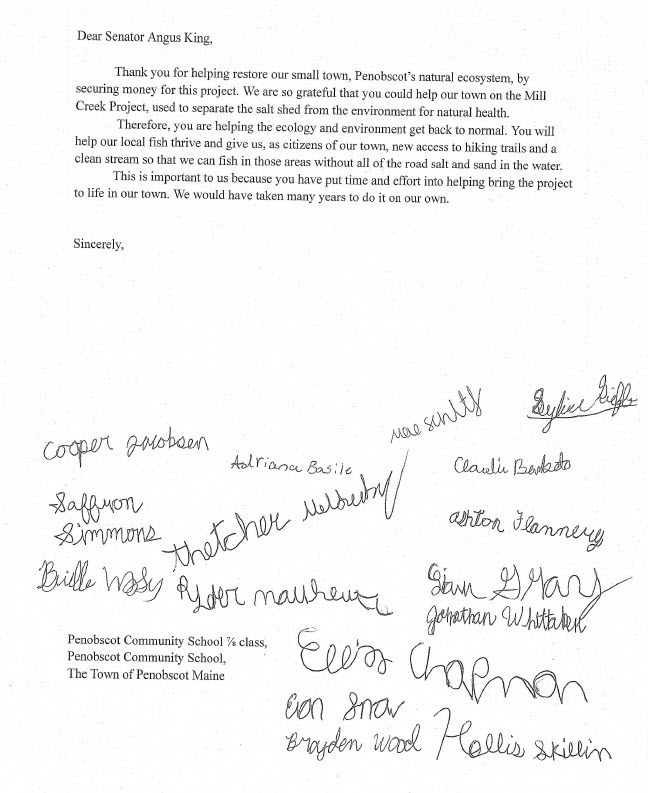 Dear Senator Angus King,
Thank you for helping restore our small town, Penobscot's natural ecosystem, by
securing money for this project. We are so grateful that you could help our town on the Mill
Creek Project, used to separate the salt shed from the environment for natural health.
Therefore, you are helping the ecology and environment get back to normal. You will
help our local fish thrive and give us, as citizens of our town, new access to hiking trails and a
clean stream so that we can fish in those areas without all of the road salt and sand in the water.
This is important to us because you have put time and effort into helping bring the project
to life in our town. We would have taken many years to do it on our own.
Sincerely,
Cooper Jacobsen
Adriana Basile
Saffron
Simmons
Thatcher
Ashton Flannery
Ryder
Jonathan Whittaker
Penobscot Community School ⅞ class,
Penobscot Community School,
The Town of Penobscot Maine
Chapman
Evan Snow
Brayden Wood
Hollis Skillin